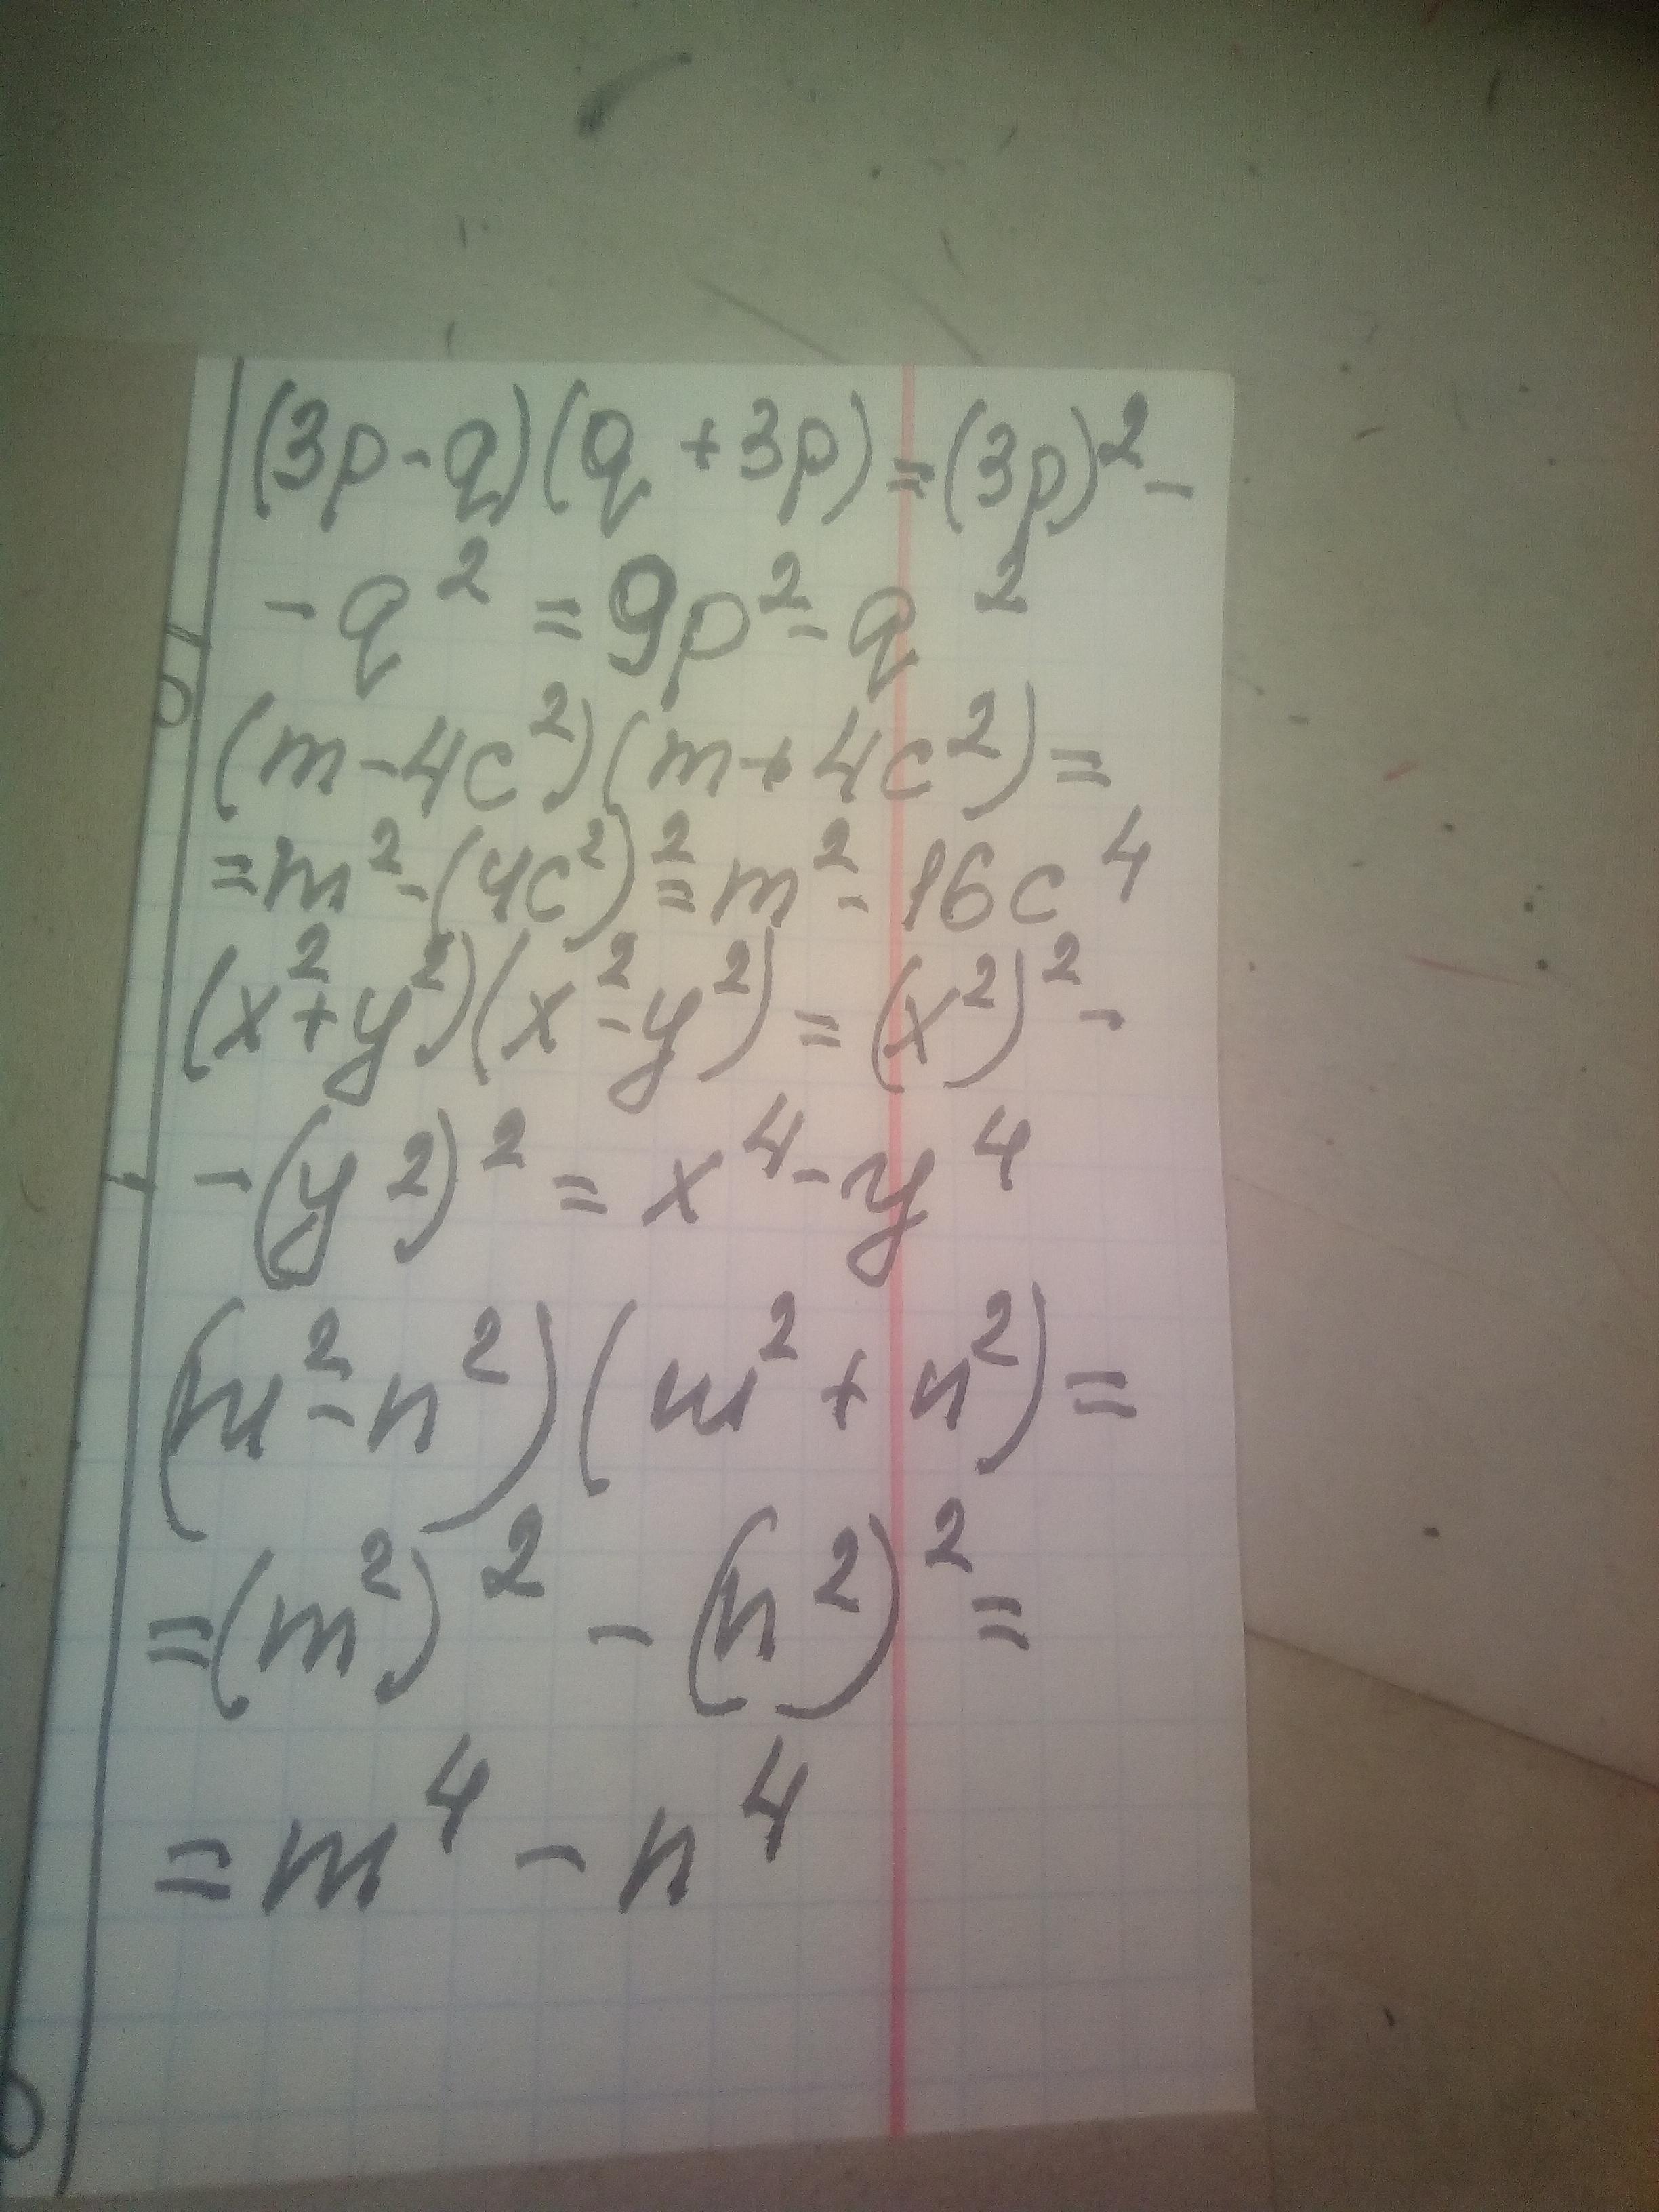 (3p-q)(q+3p)=(3p)²-
-q²=9p²-q²
(m-4c²)(m+4c²)=
=m²-(4c²)²=m²-16c⁴
(x²+y²)(x²-y²)=(x²)²-
-(y²)²=x⁴-y⁴
(m²-n²)(m²+n²)=
=(m²)²-(n²)²=
=m⁴-n⁴